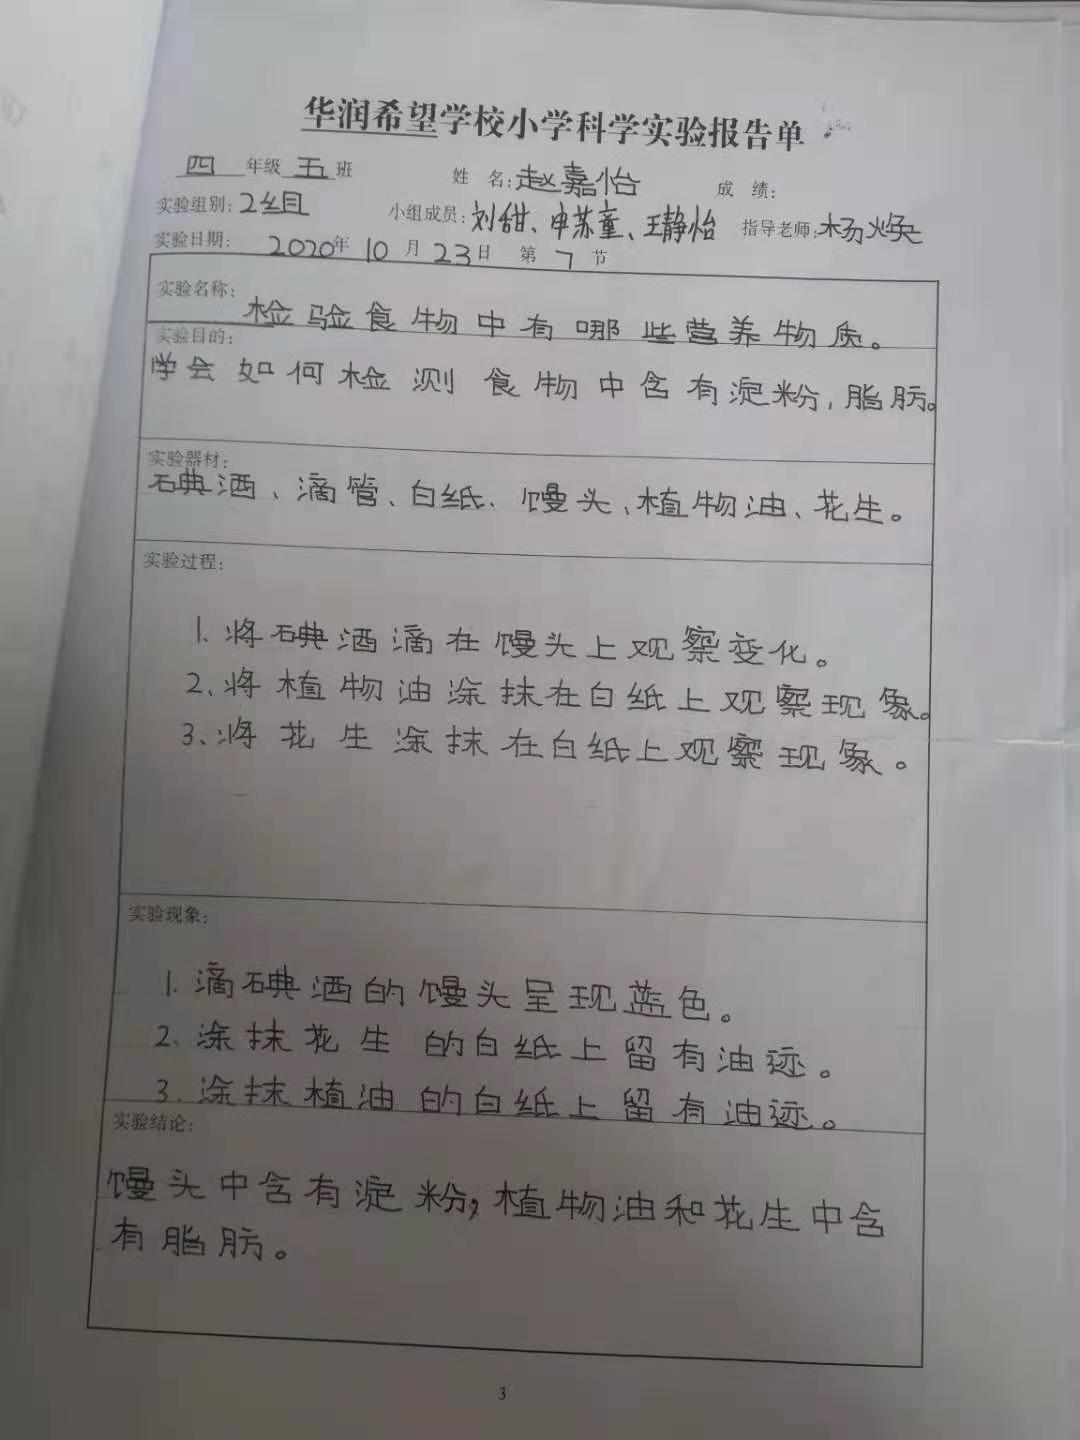 华润希望学校小学科学实验报告单
四 年级 五 班 姓 名:赵嘉怡 成 绩:
实验组别:2组 小组成员:刘甜、申苏童、王静怡 指导老师:杨焕
实验日期: 2020年 10 月 23 日 第 7 节
实验名称:检验食物中有哪些营养物质。
实验目的:
学会如何检测食物中含有淀粉,脂肪。
实验器材:
碘酒、滴管、白纸、馒头、植物油、花生。
实验过程:
1.将碘酒滴在馒头上观察变化。
2、将植物油涂抹在白纸上观察现象。
3、将花生涂抹在白纸上观察现象。
实验现象:
1.滴碘酒的馒头呈现蓝色。
2.涂抹花生的白纸上留有油迹。
3.涂抹植油的白纸上留有油迹。
实验结论:
馒头中含有淀粉,植物油和花生中含
有脂肪。
3